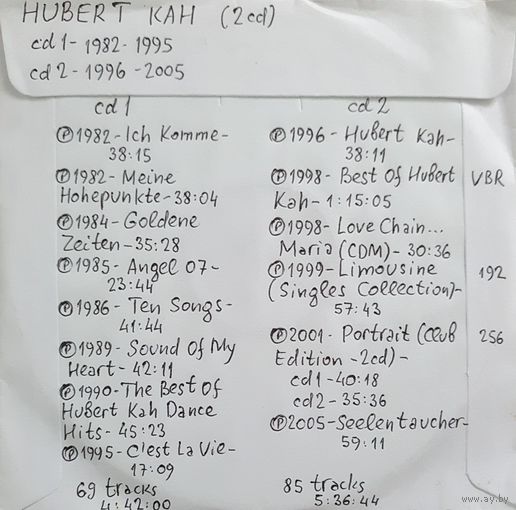 HUBERT KAH (2cd)
cd1-1982-1995
cd2-1996-2005
cd1
Ⓟ1982-Ich Komme-
38:15
Ⓟ1982-Meine
Hohepunkte-38:04
Ⓟ1984-Goldene
Zeiten-35:28
Ⓟ1985-Angel 07-
23:44
Ⓟ1986-Ten Songs-
41:44
Ⓟ1989-Sound Of My
Heart-42:11
Ⓟ1990-The Best Of
Hubert Kah Dance
Hits-45:23
Ⓟ1995-C'est La Vie-
17:09
69 tracks
4:42:00
cd2
Ⓟ1996-Hubert Kah-
38:11
Ⓟ1998-Best Of Hubert
Kah-1:15:05
Ⓟ1998-Love Chain...
Maria (CDM)-30:36
Ⓟ1999-Limousine
(Singles Collection)-
57:43
Ⓟ2001-Portrait (Club
Edition-2cd)-
cd1-40:18
cd2-35:36
Ⓟ2005-Seelentaucher-
59:11
85 tracks
5:36:44
VBR
192
256
www.ay.by